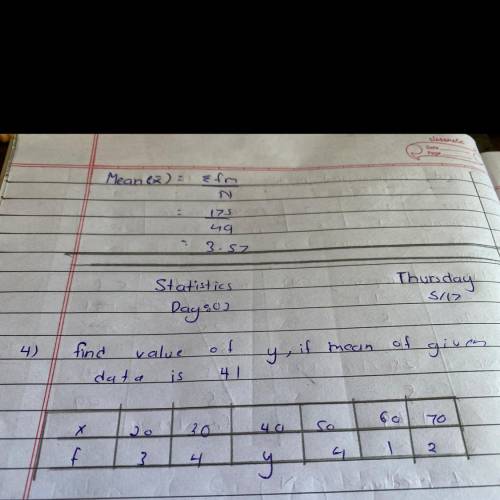 classmate
Date
Page
Mean(x̄) = Σfm
N
= 175
49
= 3.57
Statistics
Thursday
Day 02
5/17
4) find value of y, if mean of given
data is 41
x 20 30 40 50 60 70
f 3 4 y 4 1 2